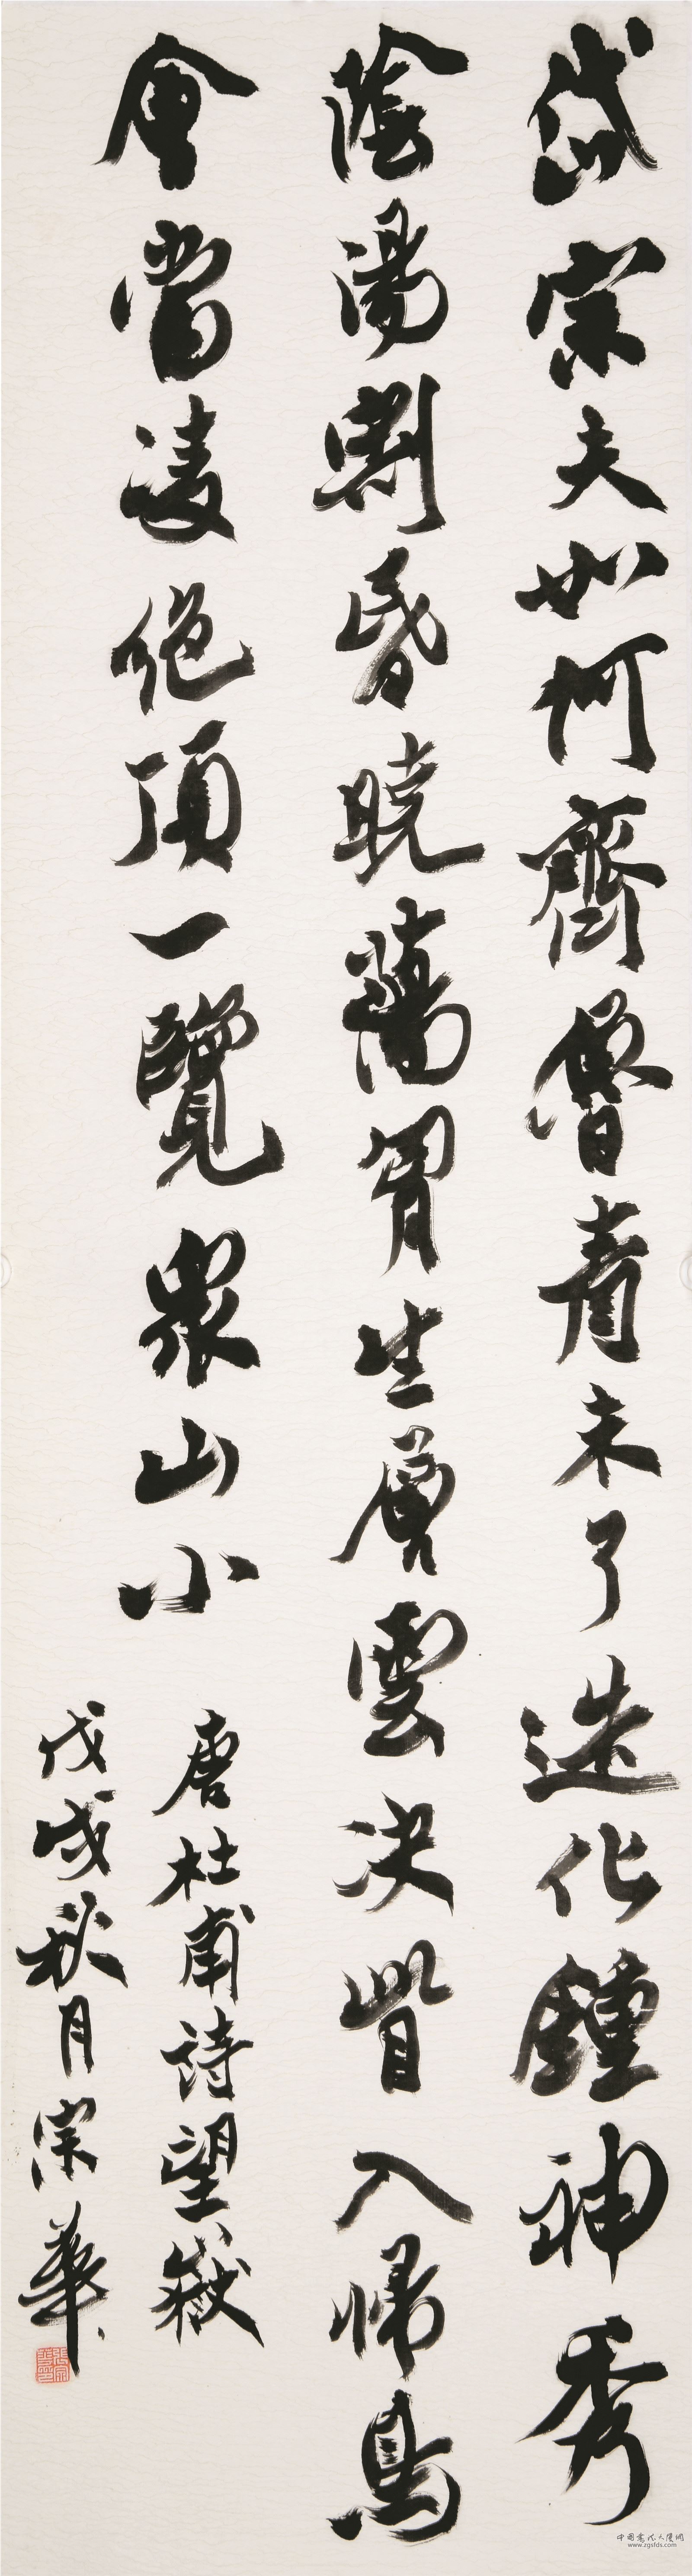 岱宗夫如何齊魯青未了造化鍾神秀
陰陽割昏曉蕩胷生層雲決眥入歸鳥
會當凌絕頂一覽眾山小
唐杜甫詩望嶽
戊戌秋月宗華
中國書法大廈網
www.zgsfds.com